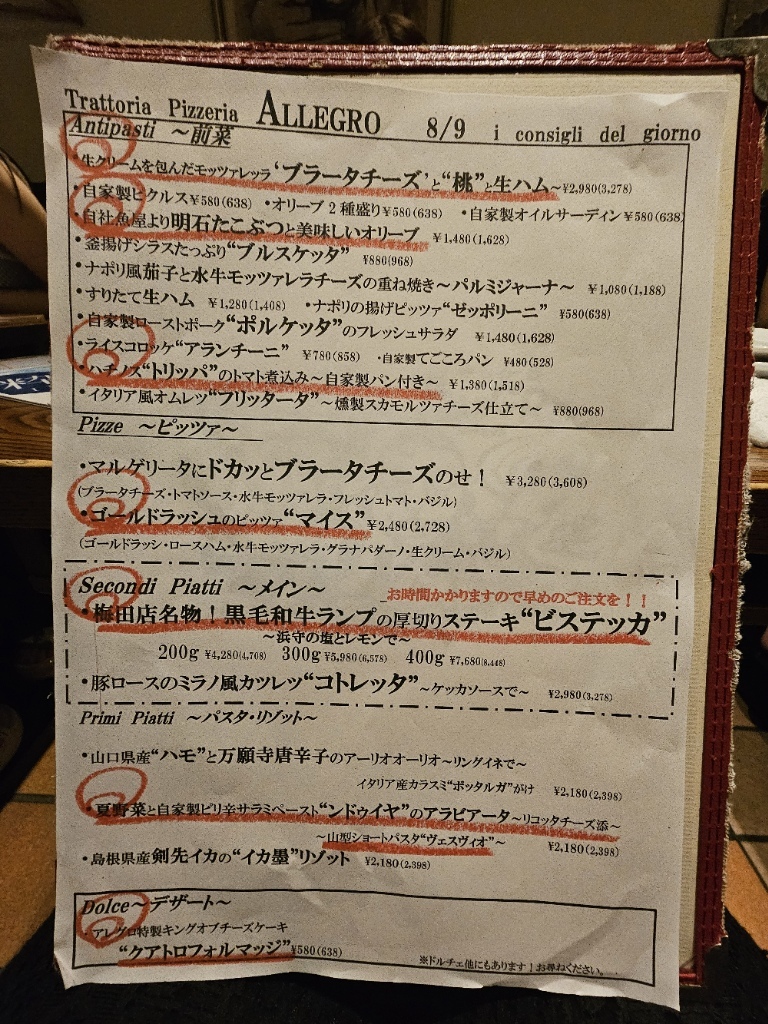 Trattoria Pizzeria ALLEGRO 8/9 i consigli del giorno
Antipasti ～前菜
・生クリームを包んだモッツァレッラ‘ブラータチーズ’と“桃”と生ハム～¥2,980(3,278)
・自家製ピクルス¥580(638) ・オリーブ2種盛り¥580(638) ・自家製オイルサーディン¥580(638)
・自社魚屋より明石たこぶつと美味しいオリーブ ¥1,480(1,628)
・釜揚げシラスたっぷり“ブルスケッタ” ¥880(968)
・ナポリ風茄子と水牛モッツァレラチーズの重ね焼き～パルミジャーナ～ ¥1,080(1,188)
・すりたて生ハム ¥1,280(1,408) ・ナポリの揚げピッツァ“ゼッポリーニ” ¥580(638)
・自家製ローストポーク“ポルケッタ”のフレッシュサラダ ¥1,480(1,628)
・ライスコロッケ“アランチーニ” ¥780(858) ・自家製てごころパン ¥480(528)
・ハチノス“トリッパ”のトマト煮込み～自家製パン付き～ ¥1,380(1,518)
・イタリア風オムレツ“フリッタータ”～燻製スカモルツァチーズ仕立て～ ¥880(968)
Pizze ～ピッツァ～
・マルゲリータにドカッとブラータチーズのせ！ ¥3,280(3,608)
(ブラータチーズ・トマトソース・水牛モッツァレラ・フレッシュトマト・バジル)
・ゴールドラッシュのピッツァ“マイス” ¥2,480(2,728)
(ゴールドラッシ・ロースハム・水牛モッツァレラ・グラナパダーノ・生クリーム・バジル)
Secondi Piatti ～メイン～ お時間かかりますので早めのご注文を！！
・梅田店名物！黒毛和牛ランプの厚切りステーキ“ビステッカ”
～浜守の塩とレモンで～
200g ¥4,280(4,708) 300g ¥5,980(6,578) 400g ¥7,680(8,448)
・豚ロースのミラノ風カツレツ“コトレッタ”～ケッカソースで～ ¥2,980(3,278)
Primi Piatti ～パスタ・リゾット～
・山口県産“ハモ”と万願寺唐辛子のアーリオオーリオ～リングイネで～
イタリア産カラスミ“ボッタルガ”がけ ¥2,180(2,398)
・夏野菜と自家製ピリ辛サラミペースト“ンドゥイヤ”のアラビアータ～リコッタチーズ添～
～山型ショートパスタ“ヴェスヴィオ”～ ¥2,180(2,398)
・島根県産剣先イカの“イカ墨”リゾット ¥2,180(2,398)
Dolce～デザート～
・アレグロ特製キングオブチーズケーキ
“クアトロフォルマッジ”¥580(638)
※ドルチェ他にもあります！お尋ねください。